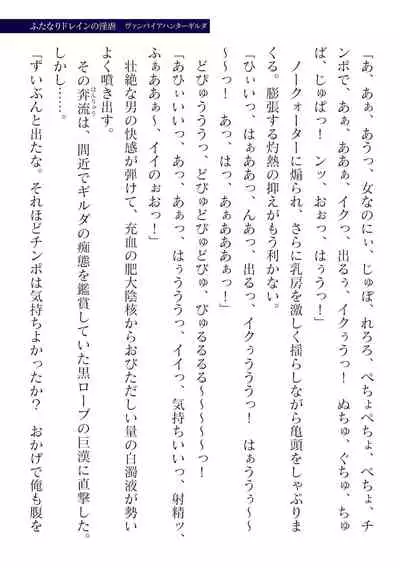 ふたなりドレインの淫虐　ヴァンパイアハンターギルダ
「あ、あぁ、あうっ、女なのにぃ、じゅぽ、れろろ、ぺちょぺちょ、ぺちょ、チ
ンポで、あぁ、ああぁ、イクっ、出るぅ、イクぅうっ！　ぬちゅ、ぐちゅ、ちゅ
ば、じゅぱっ！　ンッ、おぉっ、はぅうっ！」
ノークォーターに煽られ、さらに乳房を激しく揺らしながら亀頭をしゃぶりま
くる。膨張する灼熱の抑えがもう利かない。
「ひぃいっ、はぁああっ、んあっ、出るっ、イクぅううっ！　はぁううぅ〜〜
〜〜っ！　あっ、はっ、あぁあああぁっ！」
どぴゅうううっ、どぴゅどぴゅどぴゅ、びゅるるるる〜〜〜〜〜っ！
「あひぃいいっ、あっ、あぁっ、はぅううう、イイっ、気持ちいいっ、射精ッ、
ふぁああぁ〜、イイのぉおっ！」
壮絶な男の快感が弾けて、充血の肥大陰核からおびただしい量の白濁液が勢い
よく噴き出す。
その奔流は、間近でギルダの痴態を鑑賞していた黒ローブの巨漢に直撃した。
ほんりゅう
しかし……。
「ずいぶんと出たな。それほどチンポは気持ちよかったか？　おかげで俺も腹を